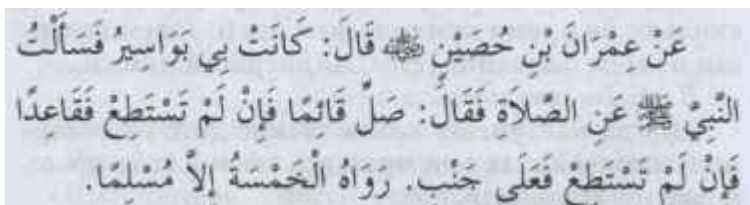 عَنْ عِمْرَانَ بْنِ حُصَيْنٍ ﷺ قَالَ: كَانَتْ بِي بَوَاسِيرُ فَسَأَلْتُ
النَّبِيَّ ﷺ عَنِ الصَّلَاةِ فَقَالَ: صَلِّ قَائِمًا فَإِنْ لَمْ تَسْتَطِعْ فَقَاعِدًا
فَإِنْ لَمْ تَسْتَطِعْ فَعَلَى جَنْبٍ. رَوَاهُ الْخَمْسَةُ إِلاَّ مُسْلِمًا.